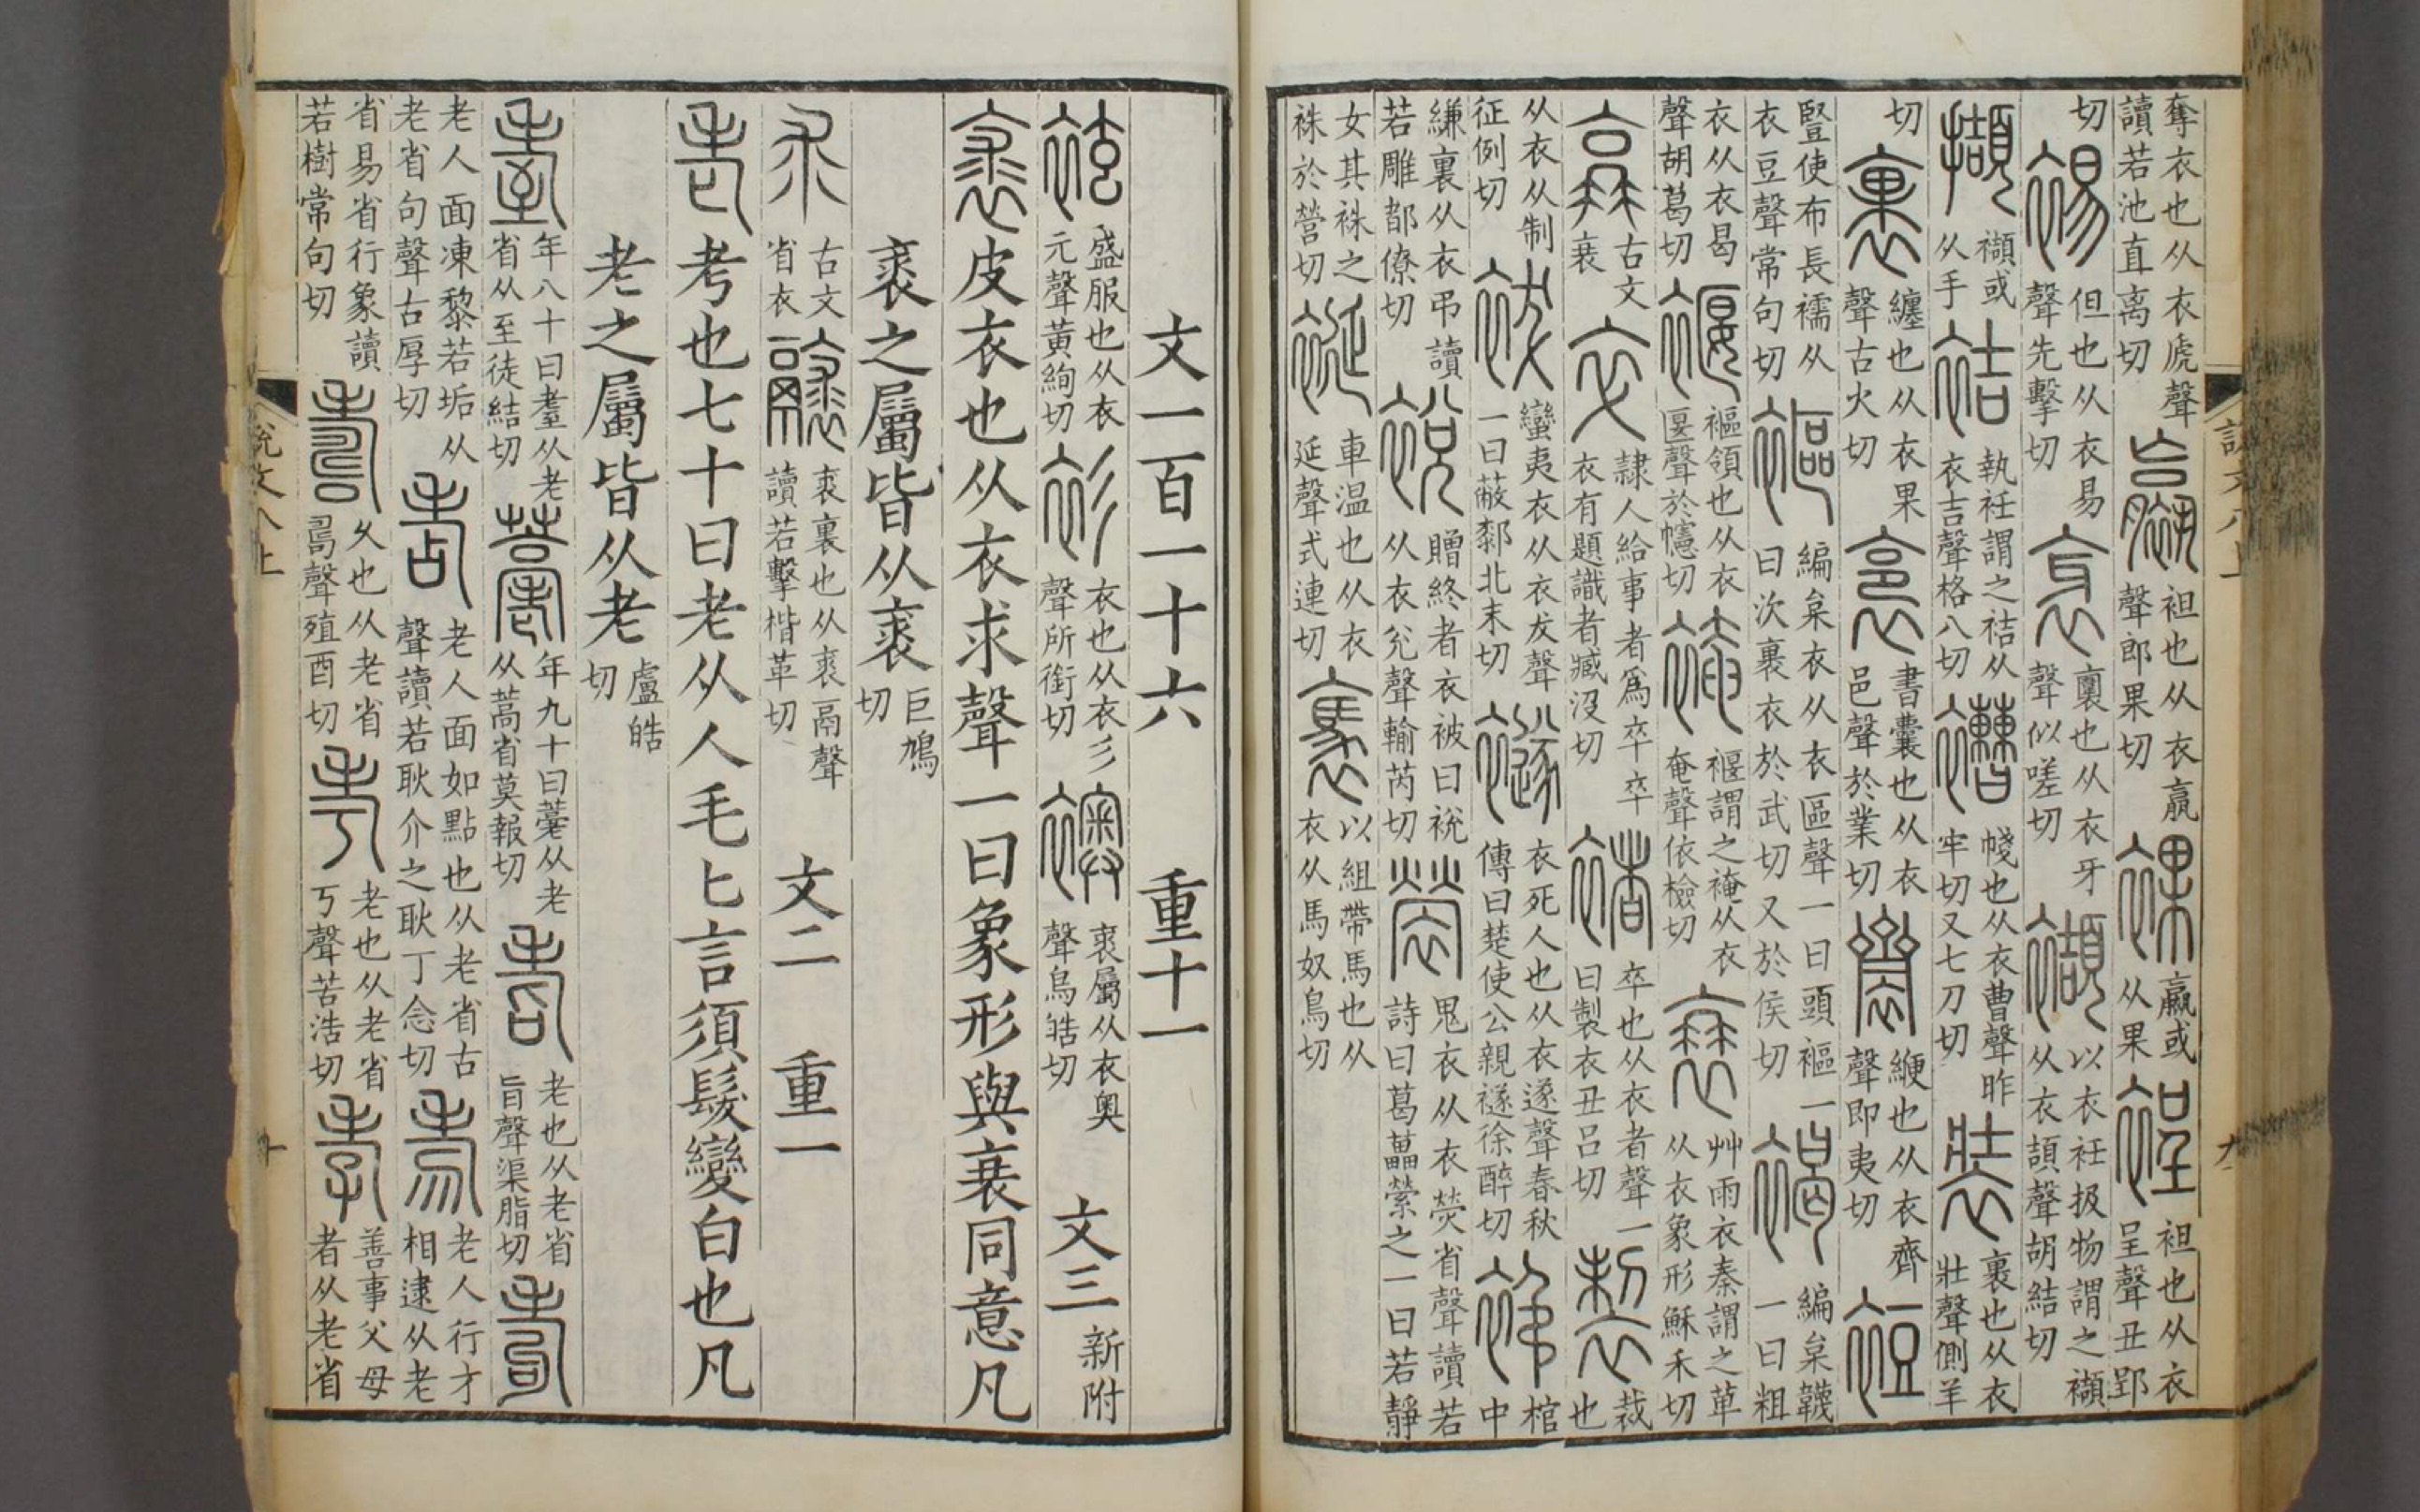 奪衣也从衣虒聲讀若池直离切臝袒也从衣𦝠聲郎果切裸臝或从果裎袒也从衣呈聲丑郢
切裼但也从衣易聲先擊切衺𧞤也从衣牙聲似嗟切襭以衣衽扱物謂之襭从衣頡聲胡結切
擷襭或从手袺執衽謂之袺从衣吉聲格八切褿帴也从衣曹聲昨牢切又七刀切裝裹也从衣壯聲側羊
切裹纏也从衣果聲古火切裛書囊也从衣邑聲於業切齌緶也从衣齊聲即夷切裋
豎使布長襦从衣豆聲常句切䙔編枲衣从衣區聲一曰頭䙔一曰次裹衣於武切又於侯切褐編枲韤一曰粗
衣从衣曷聲胡葛切褗䙔領也从衣匽聲於幰切裺褗謂之裺从衣奄聲依檢切衰艸雨衣秦謂之萆从衣象形穌禾切
古文衰卒隸人給事者爲卒卒衣有題識者臧沒切褚卒也从衣者聲一曰製衣丑呂切製裁也
从衣从制征例切袚蠻夷衣从衣犮聲一曰蔽厀北末切襚衣死人也从衣遂聲春秋傳曰楚使公親襚徐醉切棺中
縑裏从衣弔讀若雕都僚切裞贈終者衣被曰裞从衣兌聲輸芮切褮鬼衣从衣熒省聲讀若詩曰葛藟縈之一曰若靜
女其袾之袾於營切車温也从衣延聲式連切褭以組帶馬也从衣从馬奴鳥切
說文八上 九
文一百一十六 重十一
袨盛服也从衣元聲黃絢切衫衣也从衣彡聲所銜切襖裘屬从衣奥聲烏皓切 文三新附
裘皮衣也从衣求聲一曰象形與衰同意凡
裘之屬皆从裘巨鳩切
求古文省衣裘裏也从裘鬲聲讀若擊楷革切 文二 重一
老考也七十曰老从人毛匕言須髮變白也凡
老之屬皆从老盧皓切
耋年八十曰耋从老省从至徒結切薹年九十曰薹从老从蒿省莫報切耆老也从老省旨聲渠脂切耇
老人面凍黎若垢从老省句聲古厚切耆老人面如點也从老省占聲讀若耿介之耿丁念切老人行才相逮从老
省易省行象讀若樹常句切壽久也从老省𠷎聲殖酉切考老也从老省丂聲苦浩切孝善事父母者从老省
說文八上 十